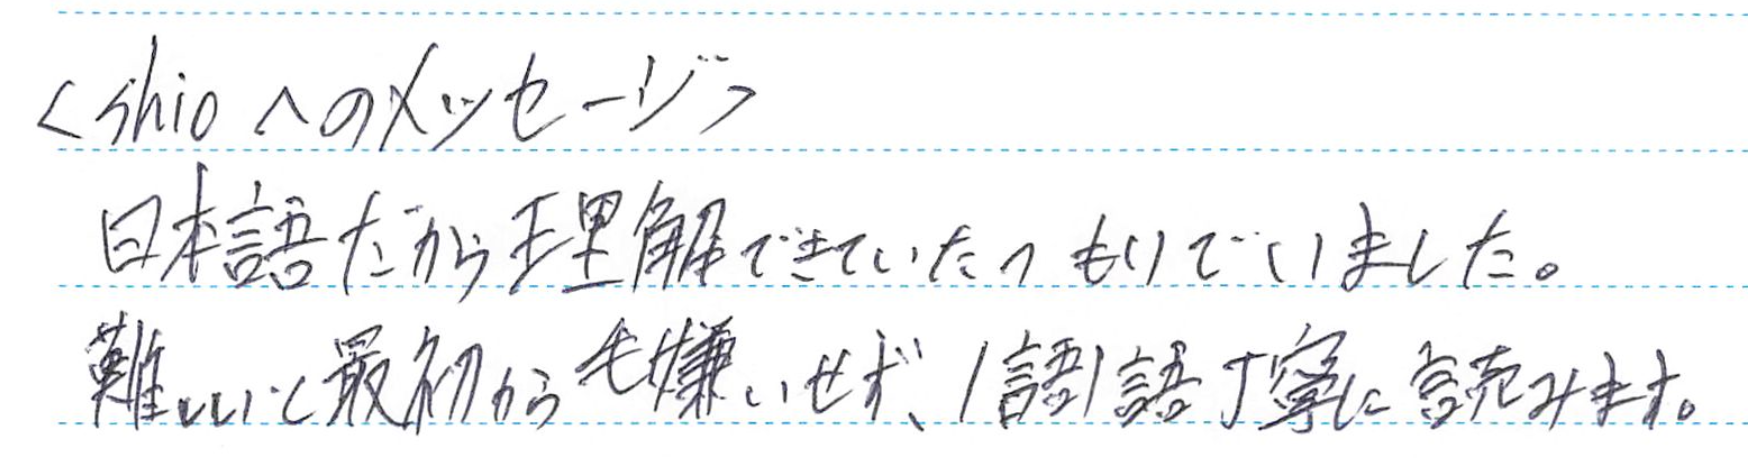 <shioへのメッセージ>
日本語だから理解できていたつもりでいました。
難しいと最初から毛嫌いせず、1語1語丁寧に読みます。